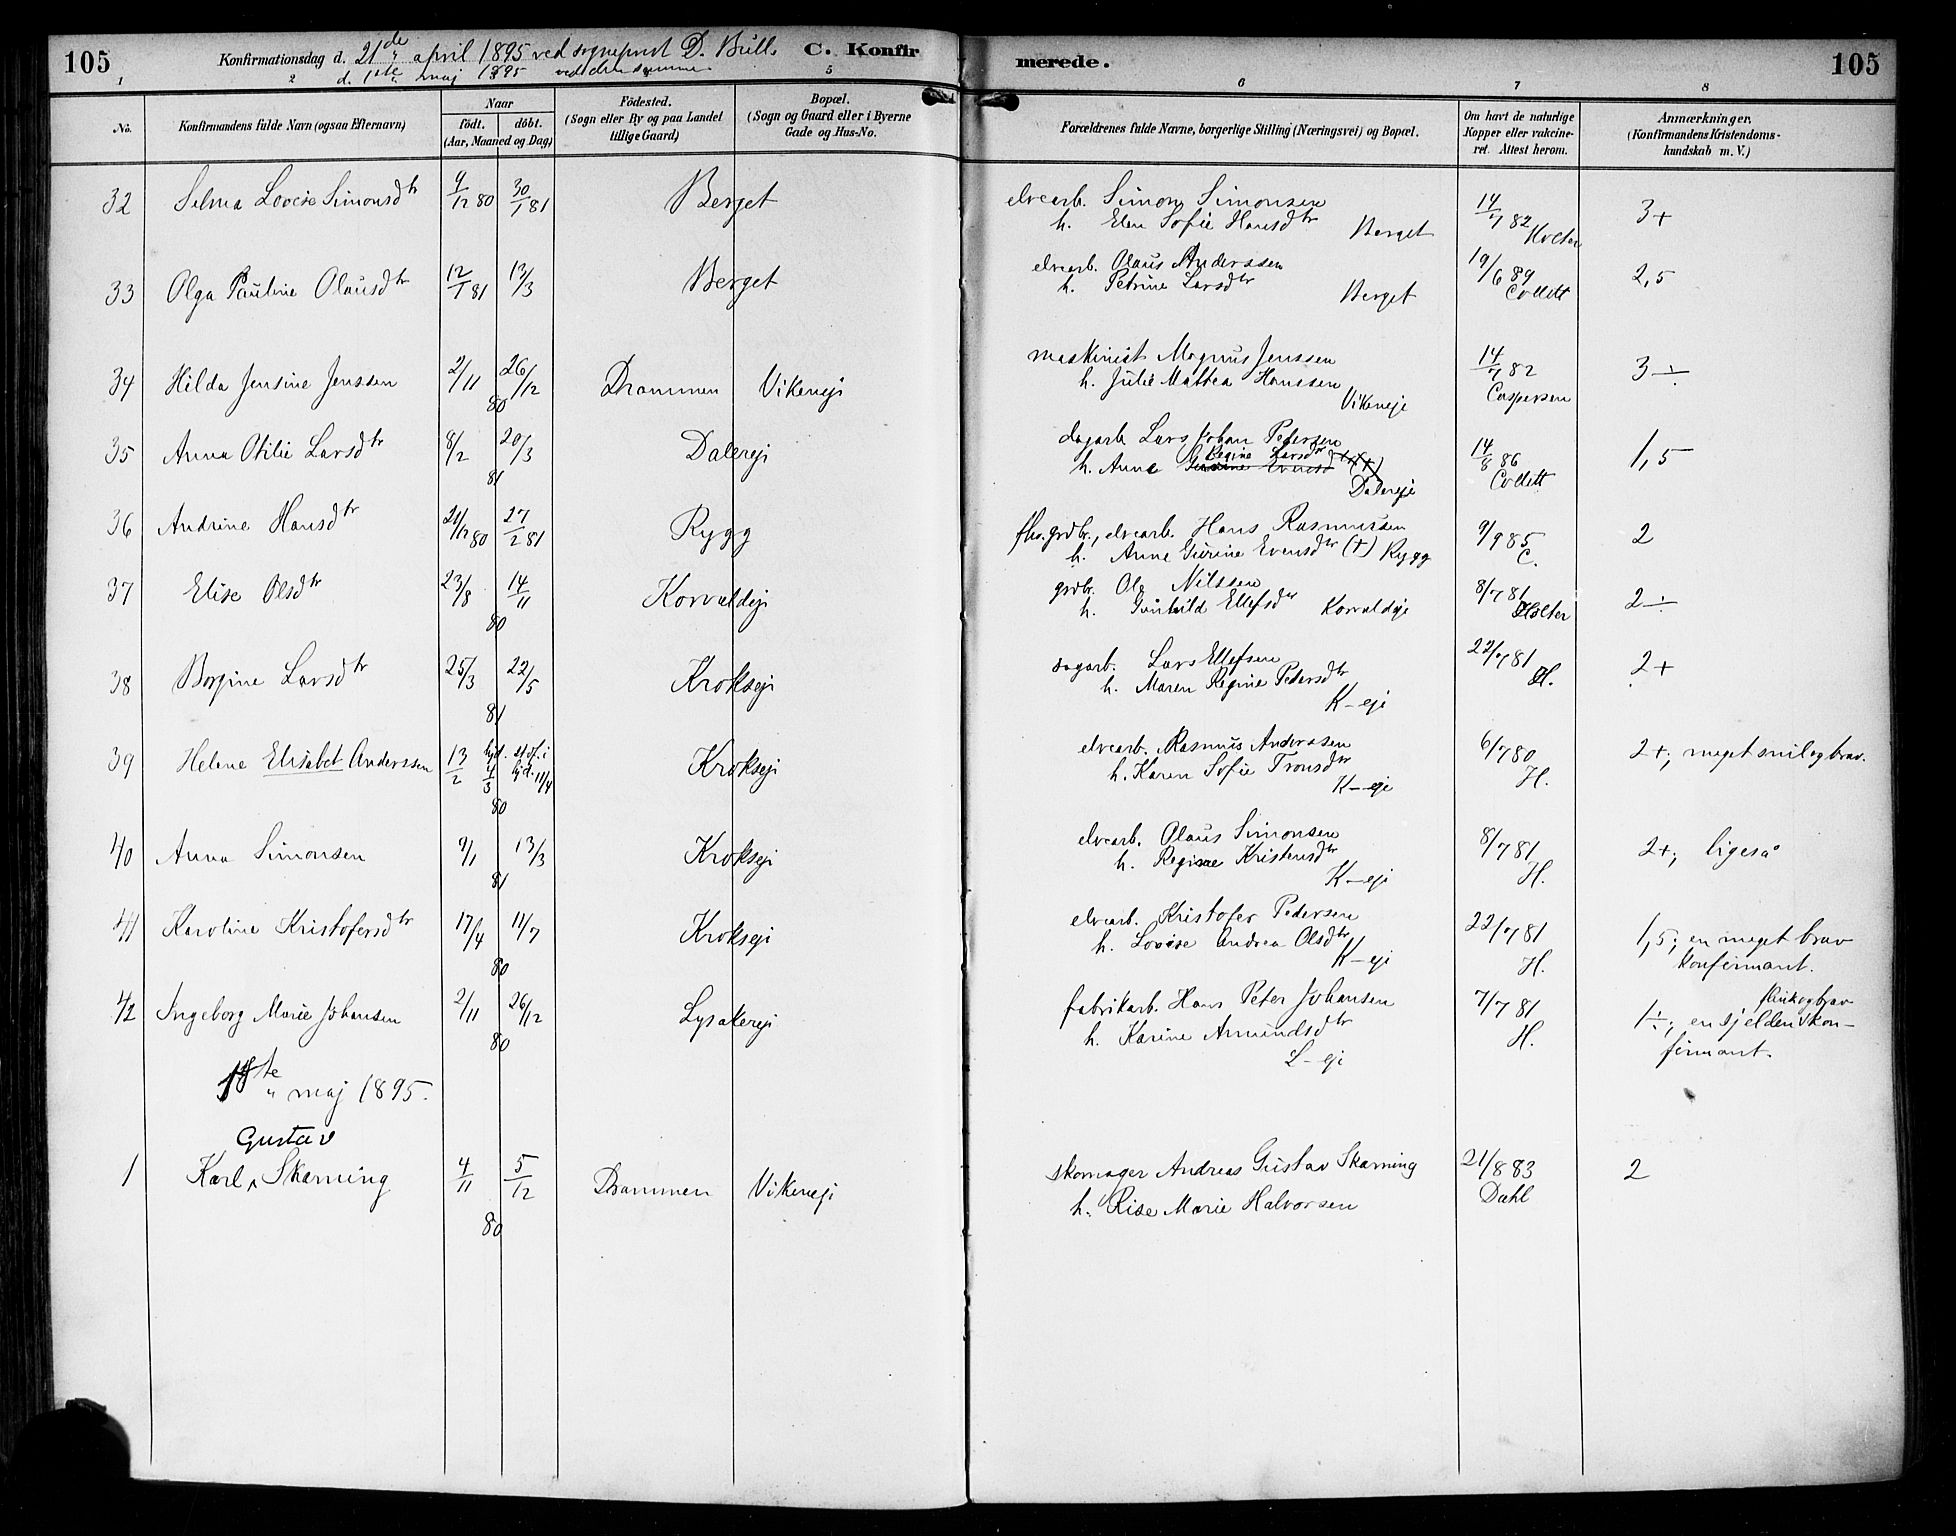 105
Konfirmationsdag d. 21de april 1895 ved sogneprest D. Bull. C. Konfir
d. 1ste maj 1895 ved den samme
merede.
105
1 2 4 5 6 7 8
No.
Konfirmandens fulde Navn (ogsaa Efternavn)
Naar
födt. döbt.
(Aar, Maaned og Dag)
Födested.
(Sogn eller By og paa Landet
tillige Gaard)
Bopæl.
(Sogn og Gaard eller i Byerne
Gade og Hus-No.
Forældrenes fulde Navne, borgerlige Stilling (Næringsvei) og Bopæl.
Om havt de naturlige
Kopper eller vakcine-
ret. Attest herom.
Anmærkninger,
(Konfirmandens Kristendoms-
kundskab m. V.)
32 Selma Lovise Simonsdtr 9/12 80 30/1 81 Berget elvearb. Simon Simonsen 14/7 82 3+
h. Elen Sofie Hansdtr Berget Holter
33 Olga Pauline Olausdtr 12/1 81 13/3 Berget elvearb. Olaus Anderssen 19/6 89 2,5
h. Petrine Larsdtr Berget Collett
34 Hilda Jensine Jenssen 2/11 26/12 80 Drammen Vikeneje maskinist Magnus Jenssen 14/7 82 3÷
h. Julie Mattea Hanssen Caspersen
Vikeneje
35 Anna Otilie Larsdtr 8/2 20/3 81 Dalereje dagarb. Lars Johan Pedersen 14/8 86 1,5
h. Anne Regine Larsdtr Collett
Gurine Evensd (+)
Dalereje
36 Andrine Hansdtr 21/12 80 27/2 81 Rygg fhv. grdbr., elvearb. Hans Rasmussen 9/9 85 2
h. Anne Gurine Evensdtr (+) Rygg C.
37 Elise Olsdtr 23/8 14/11 80 Korvaldeje grdbr. Ole Nilssen 8/7 81 2÷
h. Gunhild Ellefsdtr Korvaldeje Holter
38 Borgine Larsdtr 25/3 22/5 81 Krokseje Lars Ellefsen 22/7 81 2+
h. Maren Regine Pedersdtr H.
K-eje
39 Helene Elisabet Anderssen 13/2 hjd. 4/3 st. df. i kjd. 11/4 80 Krokseje elvearb. Rasmus Anderssen 6/7 80 2+; meget snil og brav.
h. Karen Sofie Tronsdtr H.
K-eje
40 Anna Simonsen 9/1 13/3 81 Krokseje elvearb. Olaus Simonsen 8/7 81 2+; ligeså
h. Regine Kristensdtr H.
K-eje
41 Karoline Kristofersdtr 17/4 11/7 80 Krokseje elvearb. Kristofer Pedersen 22/7 81 1,5; en meget brav
h. Lovise Andrea Olsdtr H. konfirmant.
K-eje
42 Ingeborg Marie Johansen 2/11 26/12 80 Lysakereje fabrikarb. Hans Peter Johansen 7/7 81 flink og brav
1÷; en sjelden kon-
h. Karine Amundsdtr H. firmant.
L-eje
1ste maj 1895.
Gustav
1 Karl ^ Skarning 4/11 5/12 80 Drammen Vikeneje skomager Andreas Gustav Skarning 21/8 83 2
h. Rise Marie Halvorsen Dahl